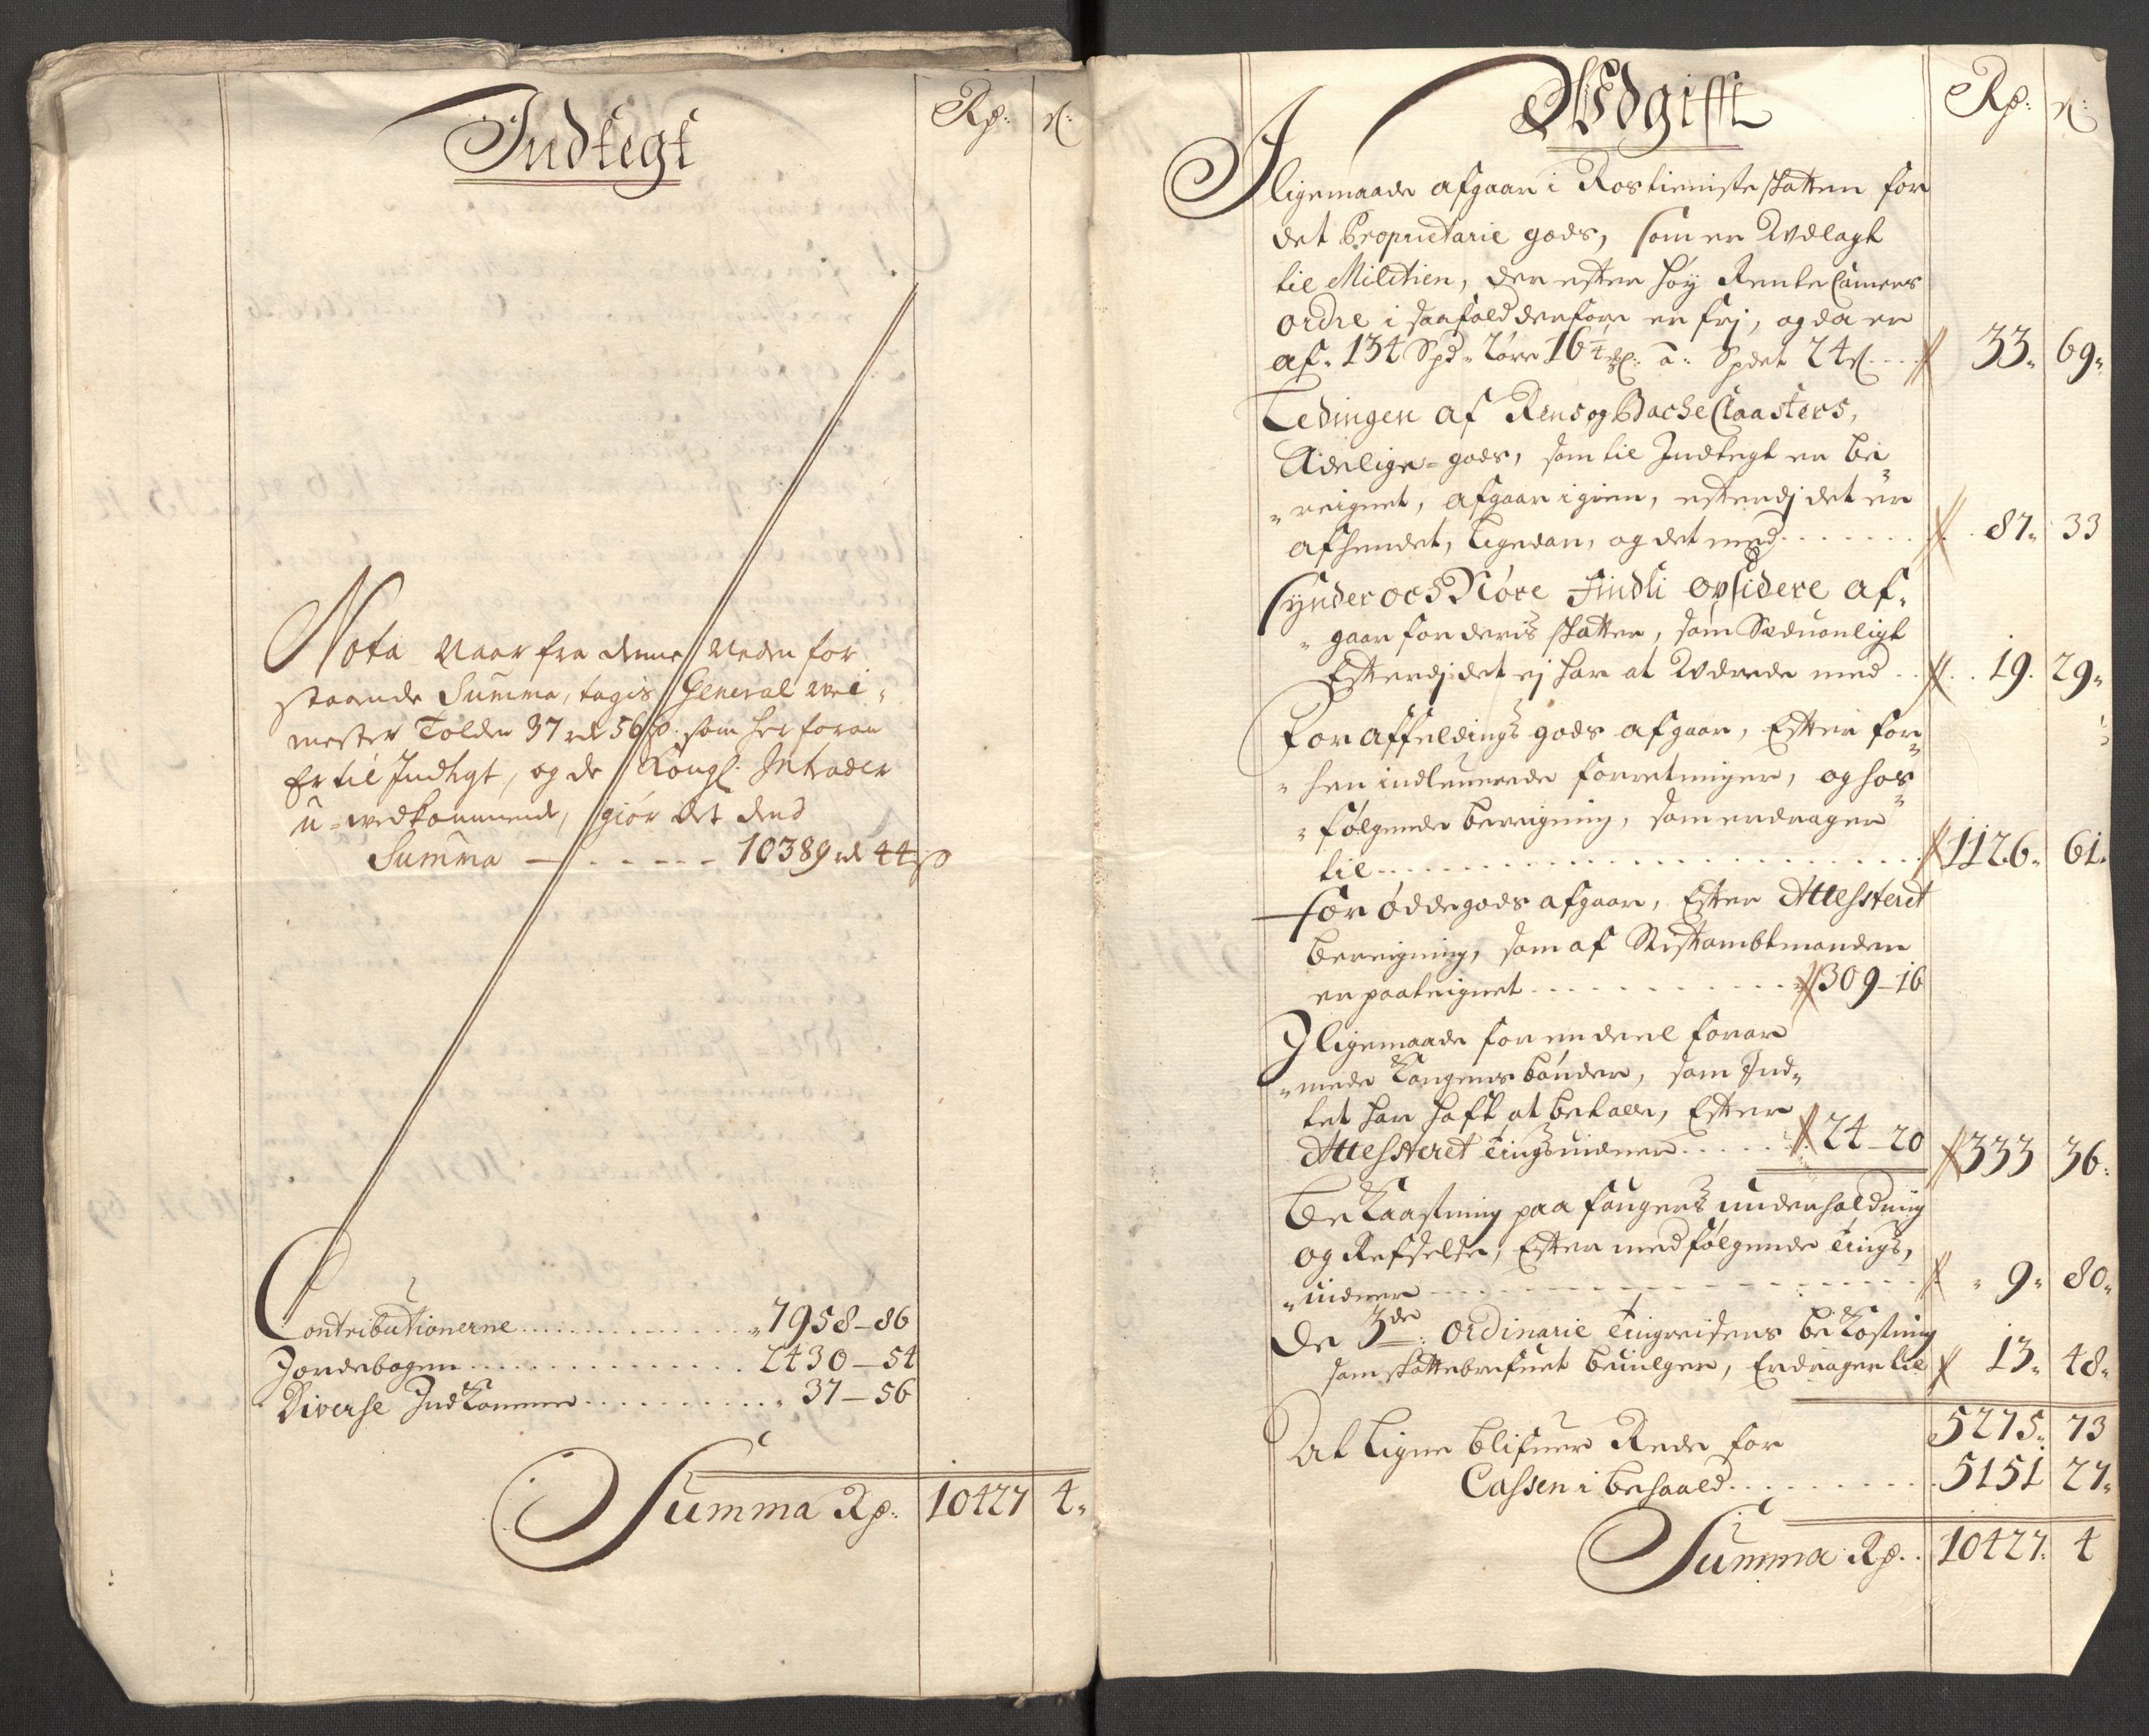 Indtegt
Rp: s:
Nota Naar fra denne Neden for
staaende Summa, tagis General vei-
mester Tolden 37 rd 56 s. som her foran
Er til Indtegt, og de Kongl. Intrader
u-wedkommende, giør det dend
Summa - - - - 10389 rd 44 s
Contributionerne 7958-86
Jordebogen 2430-54
Diverse Indkomme 37-56
Summa Rp. 10427 4
Wdgifft
Rp: s:
I ligemaade afgaar i Rostieniste skatten for
det Proprietarie gods, som er Wdlagt
til Militien, der efter høy Rente Camers
ordre i saafald derfore er frj, og da er
af 134 Spd 2 øre 16¼ a Spdet 24 s 33 69
Ledingen af Rens og Bache Claasters,
Adelige-gods, som til Indtegt er be
reignet, afgaar igien, efterdj det er
afhendet, ligedan, og det med 87 33
Synder och Nøre Findli opsidere af-
gaar for deris skatter, som Sæduanligt
Efterdj det ej har at Wdrede med 19 29
For affeldings gods afgaar, Efter for
hen indleuerede forretninger, og hos
følgende bereigning, som erdrager
til 1126 61
For øddegods afgaar, Efter Attesteret
bereigning, som af Stiftambtmanden
er paateignet 309-16
I ligemaade for en deel forar
mede Kongens bønder, som Ind-
tet har hafft at betale, Efter
Attesteret Tingsuidner 24-20 333 36
Bekaastning paa fangers underholdning
og Refselse, Efter medfølgende Tings-
uidner 9 80
De 3de ordinarie Tingreisens bekostning
som skattebrefuet beuilger, Erdrager til 13 48
5275 73
At ligne blifuer Rede for
Cassen i behaald 5151 27
Summa Rp. 10427 4